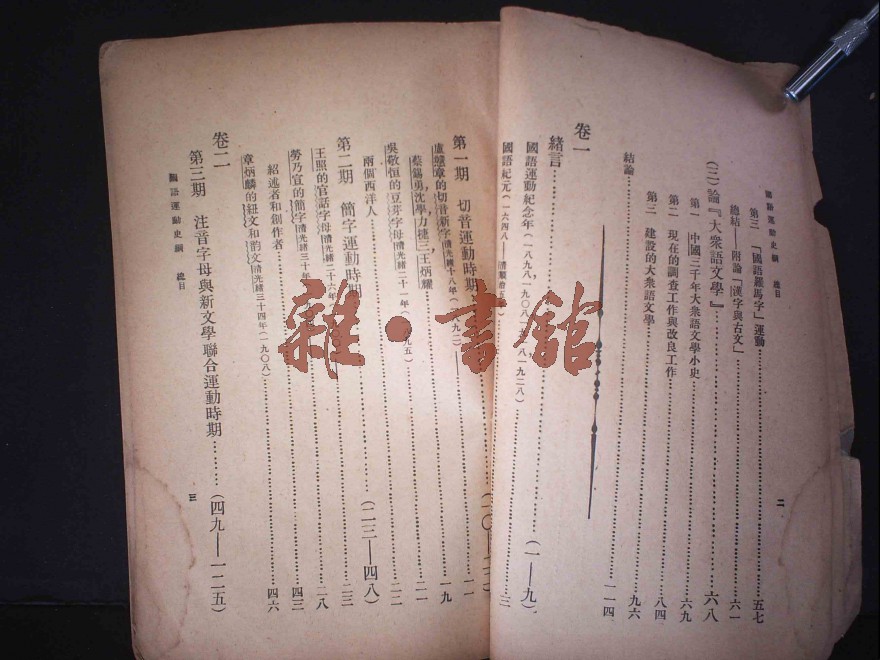 國語運動史綱 總目
二
第三 「國語羅馬字」運動 五七
總結——附論「漢字與古文」 六一
(三)論『大衆語文學』 六八
第一 中國三千年大衆語文學小史 六九
第二 現在的調查工作與改良工作 八四
第三 建設的大衆語文學 九六
結論 一一四
卷一
緒言 (一——九)
國語運動紀念年
國語紀元(一六四八——
三
第一期 切音運動時期
盧戇章的切音新字清光緒十八年(一八九二)—— 一九
蔡錫勇,沈學,力捷三,王炳耀 二一
吳敬恒的豆芽字母清光緒二十一年 二二
兩個西洋人
第二期 簡字運動時期 (二三——四八)
王照的官話字母清光緒二十六年 二八
勞乃宣的簡字清光緒三十 四三
紹述者和創作者
章炳麟的紐文和韵文清光緒三十四年(一九〇八) 四六
卷二
第三期 注音字母與新文學聯合運動時期 (四九——一二五)
國語運動史綱 總目
三
雜·書館